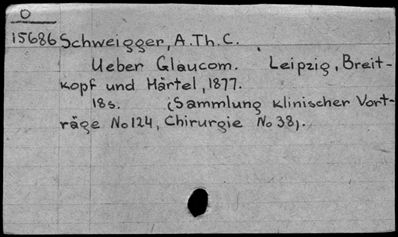 O
15686 Schweigger, A.Th.C.
Ueber Glaucom. Leipzig, Breit-
kopf und Härtel, 1877.
18s. (Sammlung klinischer Vort-
räge No 124, Chirurgie No 38).